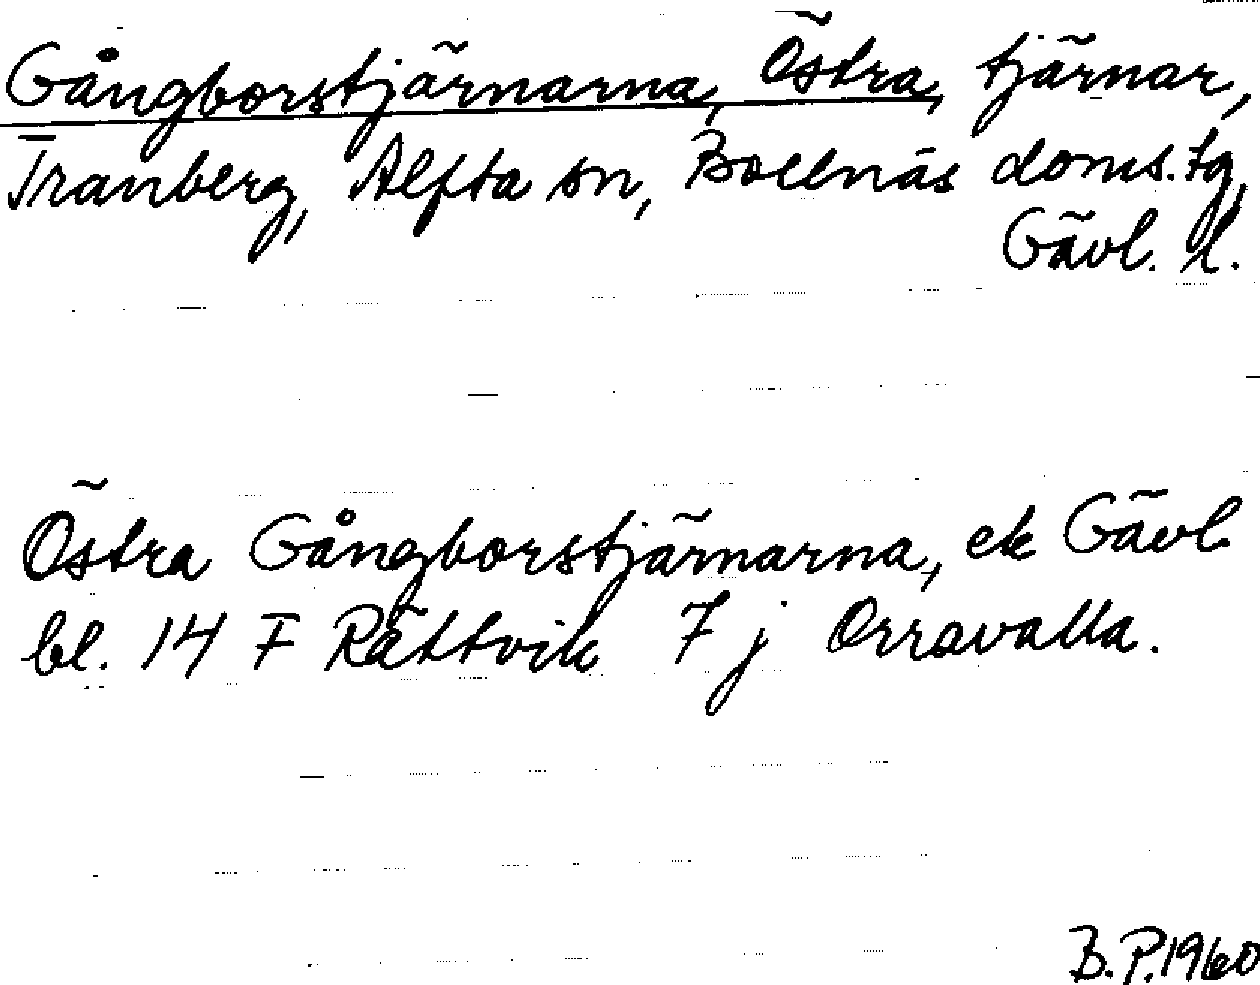 Gångborstjärnarna, Östra, tjärnar,
Tranberg, Alfta sn, Bollnäs doms.tg,
Gävl. l.
Östra Gångborstjärnarna, ek Gävl.
bl. 14 F Rättvik 7 j Orravalla.
B.P.1960